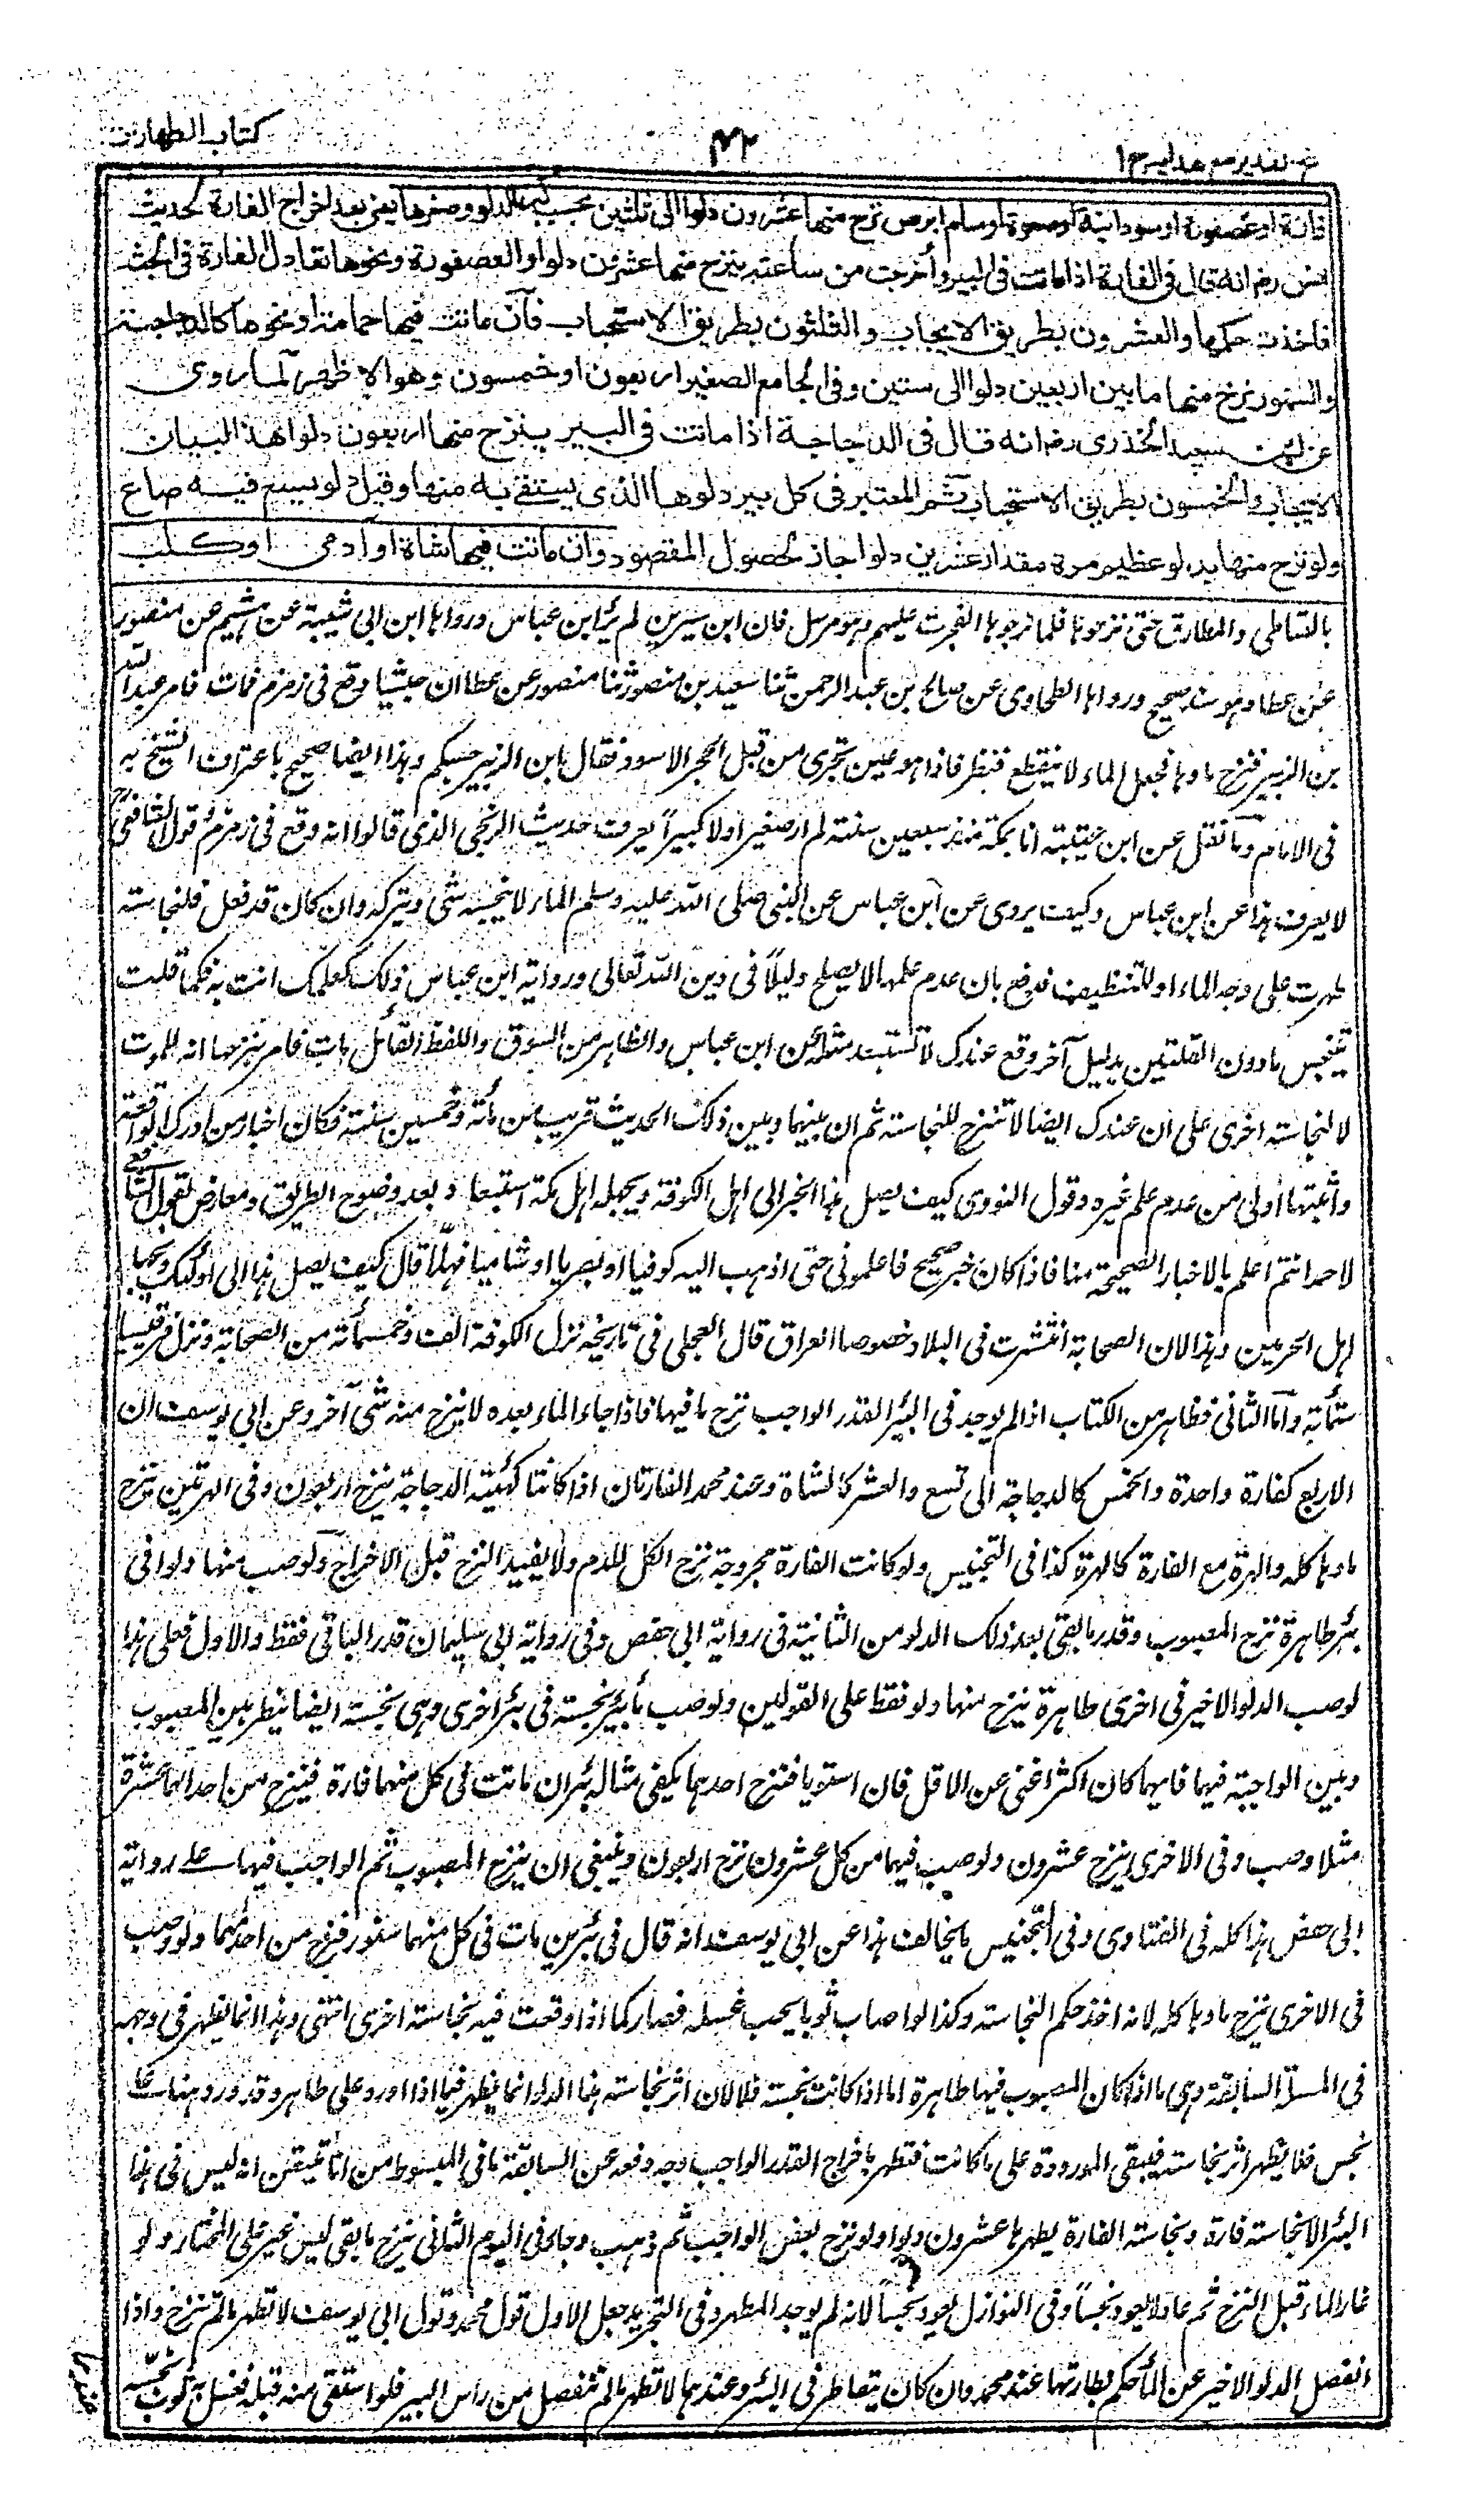 كتاب الطهارت
٤٢
فتح القدير مع هدايه ج ١
فارة او عصفورة او سودانية او صعوة او سام ابرص نزح منها عشرون دلوا الى ثلثين بحسب كبر الدلو وصغرها يعني بعد اخراج الفارة لحديث
انس رض انه قال فى الفارة اذا ماتت فى البير وأخرجت من ساعته ينزح منها عشرون دلوا والعصفورة ونحوها تعادل الفارة فى الجثة
فاخذت حكمها والعشرون بطريق الايجاب والثلثون بطريق الاستحباب فان ماتت فيها حمامة او نحوها كالدجاجة
والسنور نزح منها ما بين اربعين دلوا الى ستين وفى الجامع الصغير اربعون او خمسون وهو الاظهر لما روى
عن ابى سعيد الخدرى رض انه قال فى الدجاجة اذا ماتت فى البير ينزح منها اربعون دلوا هذا لبيان
الايجاب والخمسون بطريق الاستحباب ثم المعتبر فى كل بير دلوها الذى يستقى به منها وقيل دلو يسع فيه صاع
ولو نزح منها بدلو عظيم مرة مقدار عشرين دلوا جاز لحصول المقصود وان ماتت فيها شاة او آدمى او كلب
بالقباطى والمطارق حتى نزحوها فلما نزحوها انفجرت عليهم وهو مرسل فان ابن سيرين لم ير ابن عباس ورواها ابن ابى شيبة عن هشيم عن منصور
عن عطا وهو سند صحيح ورواها الطحاوى عن صالح بن عبد الرحمن ثنا سعيد بن منصور ثنا منصور عن عطا ان حبشيا وقع فى زمزم فمات فامر عبد الله
بن الزبير فنزح ماءها فجعل الماء لا ينقطع فنظر فاذا هو عين تجرى من قبل الحجر الاسود فقال ابن الزبير حسبكم وهذا ايضا صحيح باعتراف الشيخ به
فى الامام وما نقل عن ابن عيينة انا بمكة منذ سبعين سنة لم ار صغيرا ولا كبيرا يعرف حديث الزنجى الذى قالوا انه وقع فى زمزم وقول الشافعى رح
لا يعرف هذا عن ابن عباس وكيف يروى عن ابن عباس عن النبى صلى الله عليه وسلم الماء لا ينجسه شئ ويتركه وان كان قد فعل فلنجاسة
ظهرت على وجه الماء او للتنظيف فدفع بان عدم علمهما لا يصلح دليلا فى دين الله تعالى ورواية ابن عباس ذلك كعلمك انت به فكما قلت
يتنجس ما دون القلتين بدليل آخر وقع عندك لا تستبعد مثله عن ابن عباس والظاهر من السوق واللفظ القائل مات فامر بنزحها انه للموت
لا لنجاسة اخرى على ان عندك ايضا لا تنزح للنجاسة ثم ان بينهما وبين ذلك الحديث قريب من مأة وخمسين سنة فكان اخبار من ادرك الواقعة
واثبتها اولى من عدم علم غيره وقول النووى كيف يصل هذا الخبر الى اهل الكوفة ويجهله اهل مكة استبعاد بعد وضوح الطريق ومعارض لقول الشافعى
لاحمد انتم اعلم بالاخبار الصحيحة منا فاذا كان خبر صحيح فاعلمونى حتى اذهب اليه كوفيا او بصريا او شاميا فهلا قال كيف يصل هذا الى اولئك ويجهله
اهل الحرمين وهذا لان الصحابة انتشرت فى البلاد خصوصا العراق قال العجلى فى تاريخه نزل الكوفة الف وخمسمأة من الصحابة ونزل قرقيسيا
ستمأة واما الثانى فظاهر من الكتاب اذا لم يوجد فى البئر القدر الواجب نزح ما فيها فاذا جاء الماء بعده لا ينزح منه شئ آخر وعن ابى يوسف ان
الاربع كفارة واحدة والخمس كالدجاجة الى تسع والعشر كالشاة وعند محمد الفارتان اذا كانتا كهيئة الدجاجة ينزح اربعون وفى الهرتين ينزح
ماءها كله والهرة مع الفارة كالهرة كذا فى التجنيس ولو كانت الفارة مجروحة نزح الكل للدم ولا يفيد النزح قبل الاخراج ولو صب منها دلوا فى
بئر طاهرة نزح المصبوب وقدر ما بقى بعد ذلك الدلو من الثانية فى رواية ابى حفص وفى رواية ابى سليمان قدر الباقى فقط والاول فعلى هذا
لو صب الدلو الاخير فى اخرى طاهرة ينزح منها دلو فقط على القولين ولو صب ماء بئر نجسة فى بئر اخرى وهى نجسة ايضا ينظر بين المصبوب
وبين الواجبة فيها فايهما كان اكثر اغنى عن الاقل فان استويا فنزح احدهما يكفى مثاله بئران ماتت فى كل منهما فارة فينزح من احداهما عشرة
مثلا وصب وفى الاخرى ينزح عشرون ولو صب فيها من كل عشرون نزح اربعون وينبغى ان ينزح المصبوب ثم الواجب فيها على رواية
ابى حفص هذا كله فى الفتاوى وفى التجنيس ما يخالف هذا عن ابى يوسف انه قال فى بئرين مات فى كل منهما سنور فنزح من احدهما دلو وصب
فى الاخرى ينزح ماءها كله لانه اخذ حكم النجاسة وكذا لو اصاب ثوبا يجب غسله فصار كما اذا وقعت فيه نجاسة اخرى انتهى وهذا انما يظهر فى وجه
فى المسئلة السابقة وهى ما اذا كان المصبوب فيها طاهرة اما اذا كانت نجسة فلا لان اثر نجاسة هذا الدلو انما يظهر فيما اذا اورد على طاهر وقد ورد هنا على
نجس فلا يظهر اثر نجاسته فيبقى المورودة على ما كانت فتطهر باخراج القدر الواجب وجه دفعه عن السابقة ما فى المبسوط من انا نتيقن انه ليس فى هذا
البئر الا نجاسة فارة ونجاسة الفارة يطهرها عشرون دلوا ولو نزح بعض الواجب ثم ذهب وجاء فى اليوم الثانى ينزح ما بقى ليس غير على المختار ولو
غار الماء قبل النزح ثم عاد لا يعود نجسا وفى النوازل يعود نجسا لانه لم يوجد المطهر وفى التجريد جعل الاول قول محمد وقول ابى يوسف لا تطهر ما لم تنزح واذا
انفصل الدلو الاخير عن الماء حكم بطهارتها عند محمد وان كان يتقاطر فى البئر وعندهما لا تطهر ما لم تنفصل من راس البير فلو استقى منه قبله فغسل به ثوب نجسه